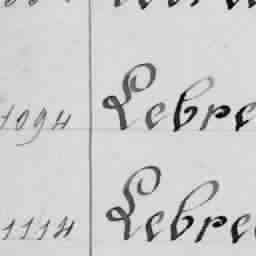 1094 Lebre
1114 Lebre